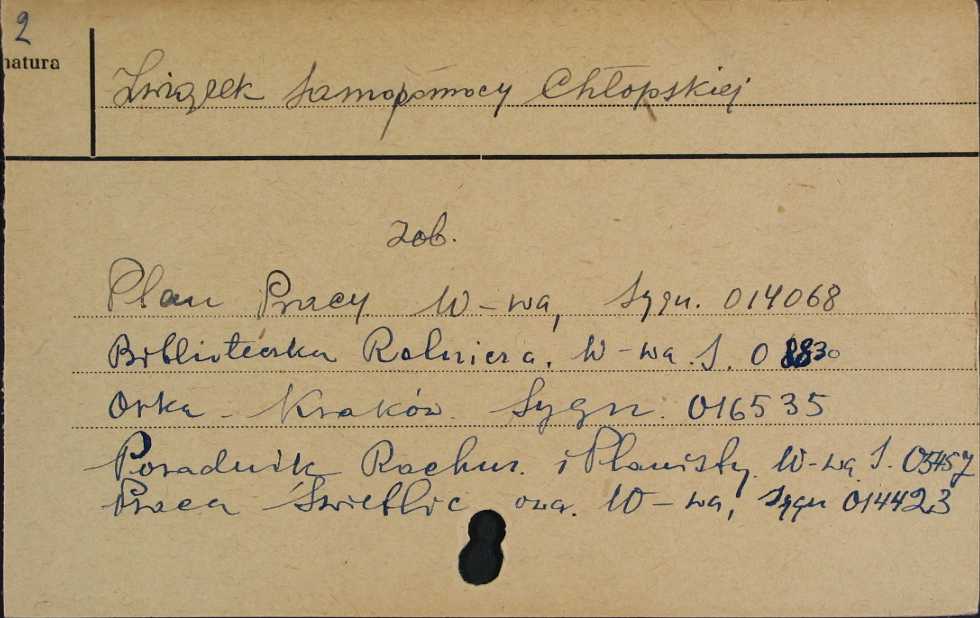 2
natura
Związek Samopomocy Chłopskiej
zob.
Plan Pracy W-wa, Sygn. 014068
Biblioteczka Rolnicza. W-wa. S. 0
Orka - Kraków. Sygn. 016535
Poradnik Rachun. i Planisty. W-wa S.
Praca Świetlic owa. W-wa, Sygn 014423